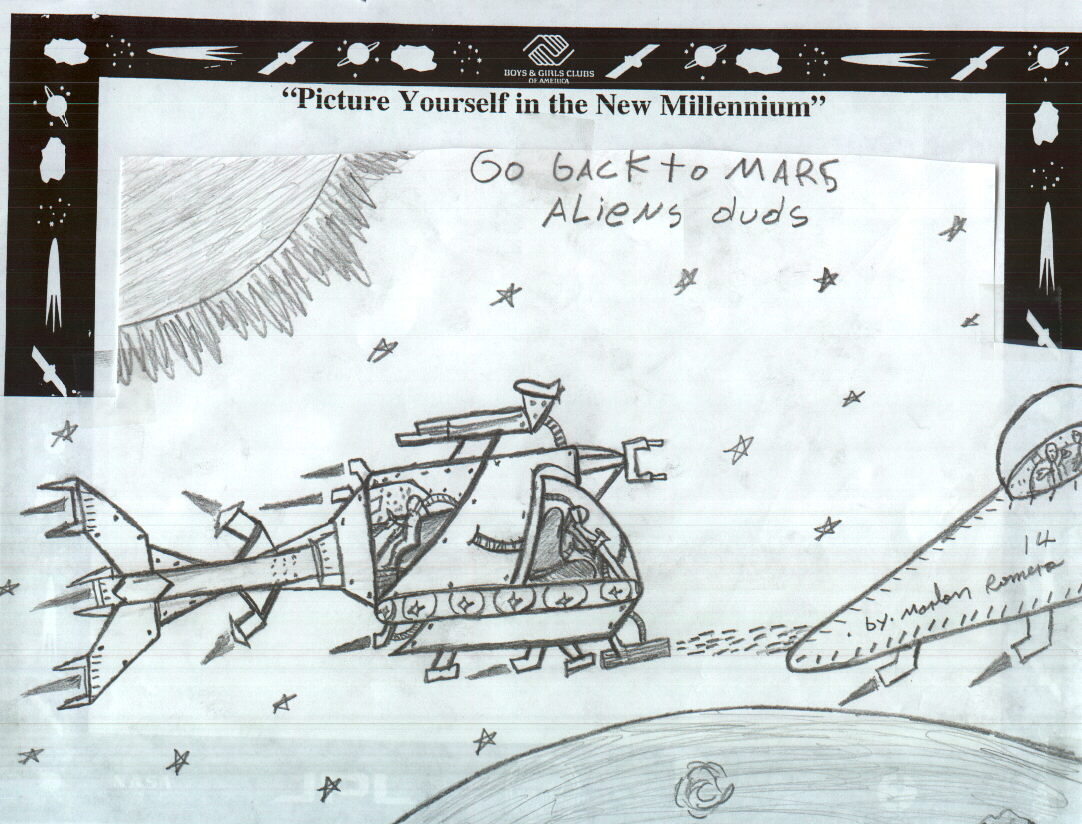 BOYS & GIRLS CLUBS
OF AMERICA
“Picture Yourself in the New Millennium”
GO BACK to MARS
ALiENS duds
14
by: Marlon Romera